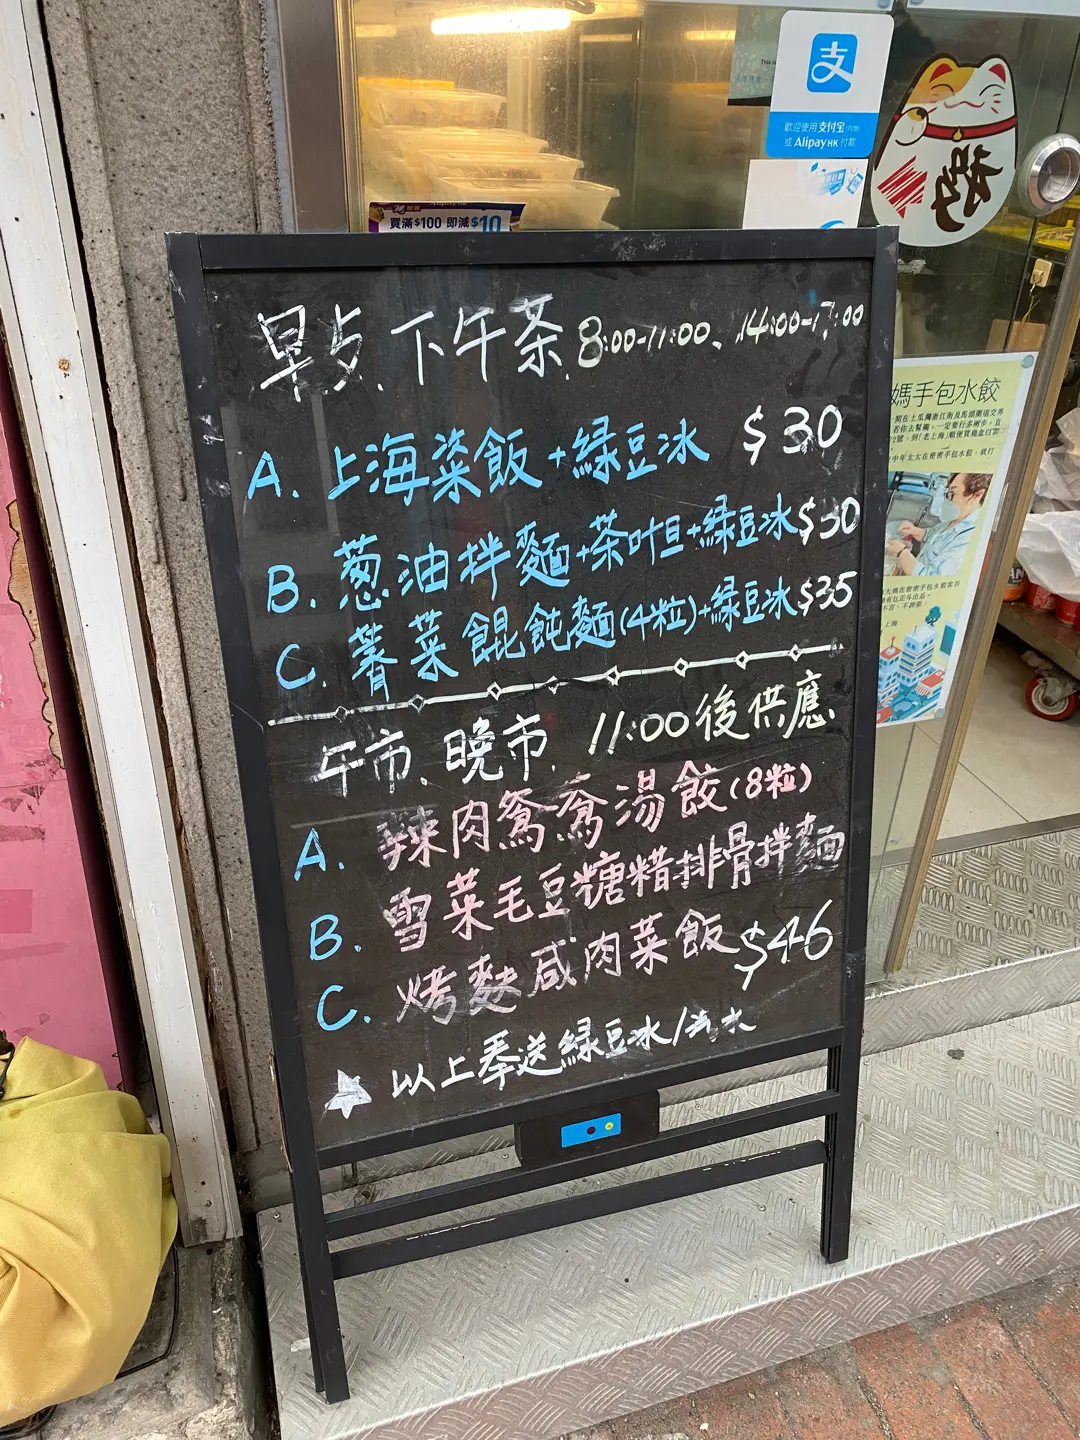 支
歡迎使用 支付宝 内地
或 AlipayHK 付款
買滿$100 即減$10
早点. 下午茶. 8:00-11:00、14:00-17:00
A. 上海菜飯+綠豆冰 $30
B. 葱油拌麵+茶叶旦+綠豆冰$30
C. 薺菜餛飩麵(4粒)+綠豆冰$35
午市. 晚市. 11:00後供應
A. 辣肉鴛鴦湯餃(8粒)
B. 雪菜毛豆糖糖排骨拌麵
C. 烤麩咸肉菜飯 $46
以上奉送綠豆冰/汽水
媽手包水餃